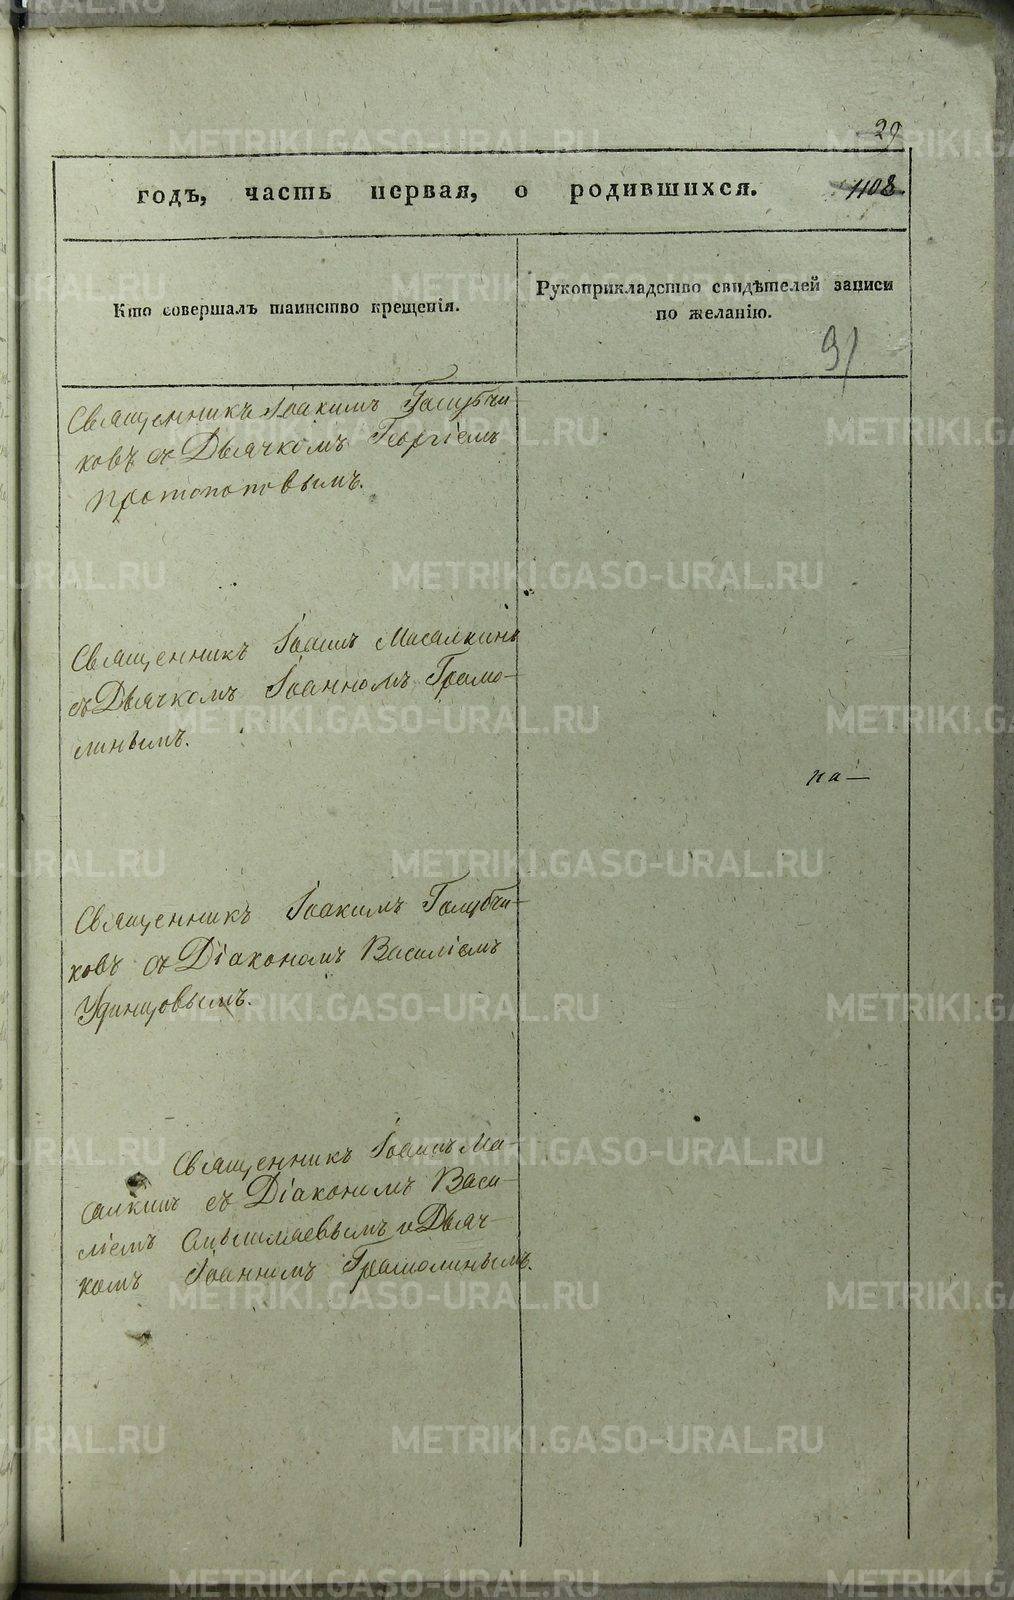 29
годъ, часть первая, о родившихся. 1108.
Кто совершалъ таинство крещенія.
Рукоприкладство свидѣтелей записи
по желанію.
31
Священникъ Іоакимъ Голубчи
ковъ съ Дьячкомъ Георгіемъ
Протопоповымъ.
Священникъ Іоаннъ Масалкинъ
съ Дьячкомъ Іоанномъ Грамо-
линымъ.
па—
Священникъ Іоакимъ Голубчи-
ковъ съ Діакономъ Василіемъ
Удинцовымъ.
Священникъ Іоаннъ Ма-
салкинъ съ Діакономъ Васи-
ліемъ и Дьяч-
комъ Іоанномъ Грамолинымъ.
METRIKI.GASO-URAL.RU